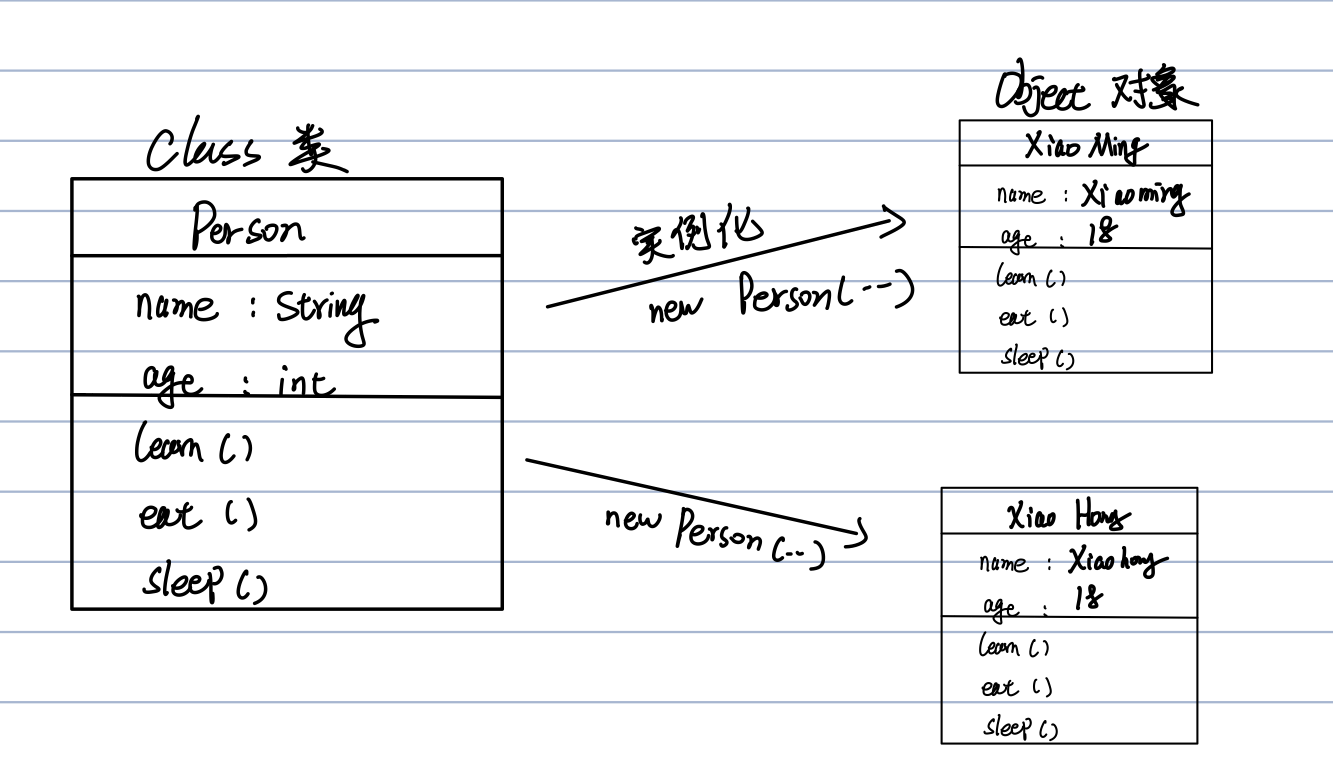 Class 类
Person
name : String
age : int
learn ()
eat ()
sleep ()
实例化
new Person(--)
new Person (--)
Object 对象
Xiao Ming
name : Xiaoming
age : 18
learn ()
eat ()
sleep ()
Xiao Hong
name : Xiaohong
age : 18
learn ()
eat ()
sleep ()